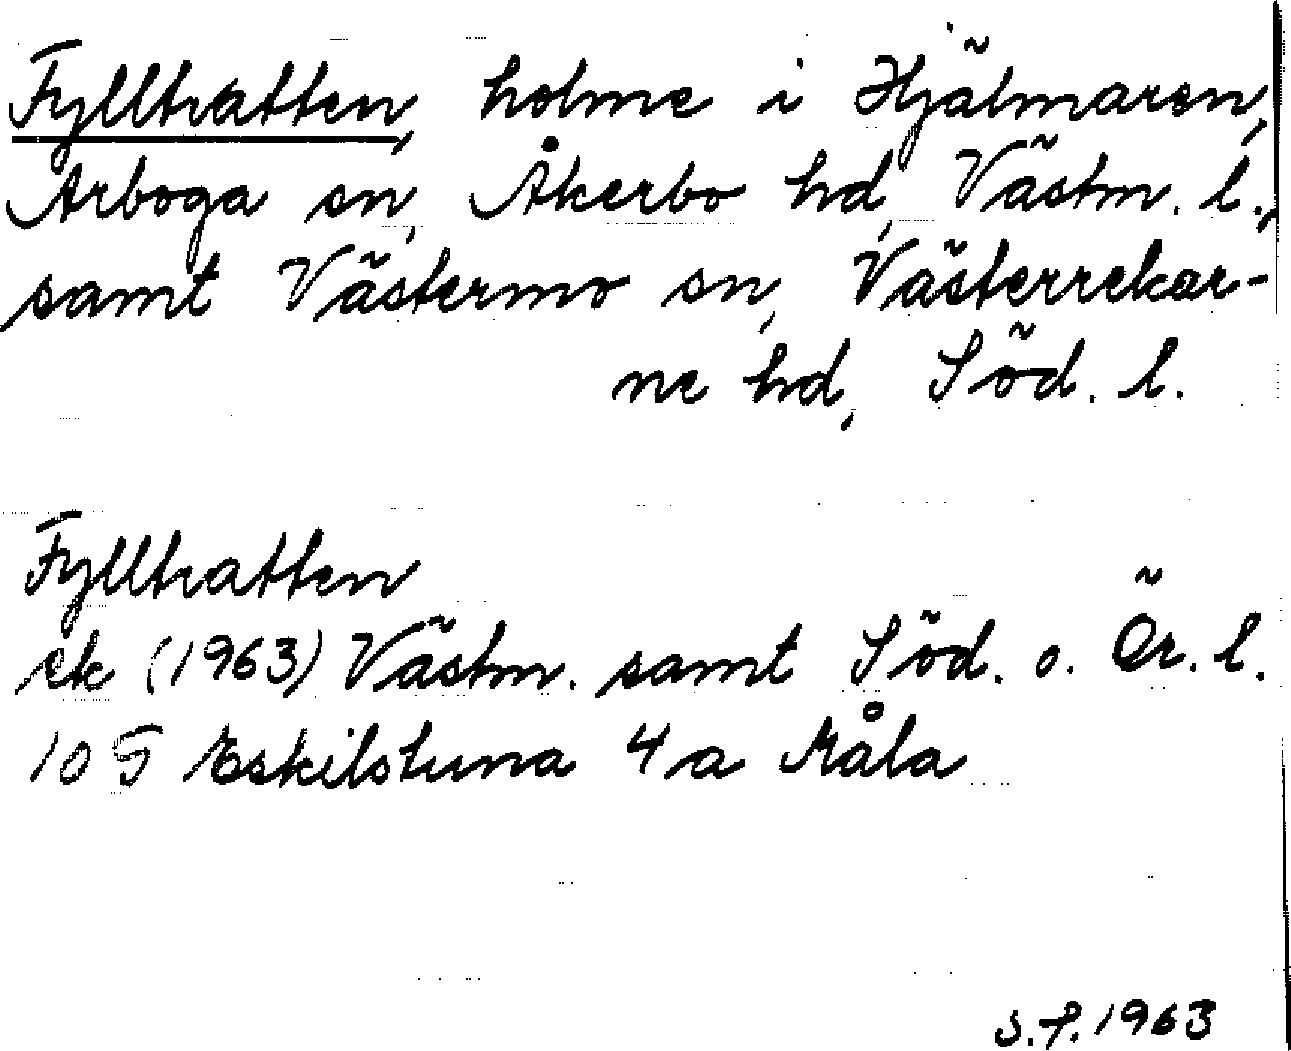 Fylltratten, holme i Hjälmaren,
Arboga sn, Åkerbo hd, Västm. l.,
samt Västermo sn, Västerrekar-
ne hd, Söd. l.
Fylltratten
ek (1963) Västm. samt Söd. o. Ör. l.
10 G Eskilstuna 4 a Måla
S.F. 1963